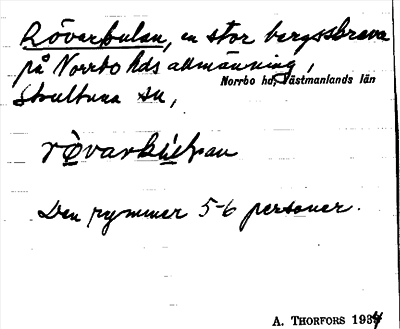 Rövarkulan, en stor bergsskreva
på Norrbo hds allmänning,
Norrbo hd, Västmanlands län
Skultuna sn,
rövarku̇lan
Den rymmer 5-6 personer.
A. THORFORS 1934